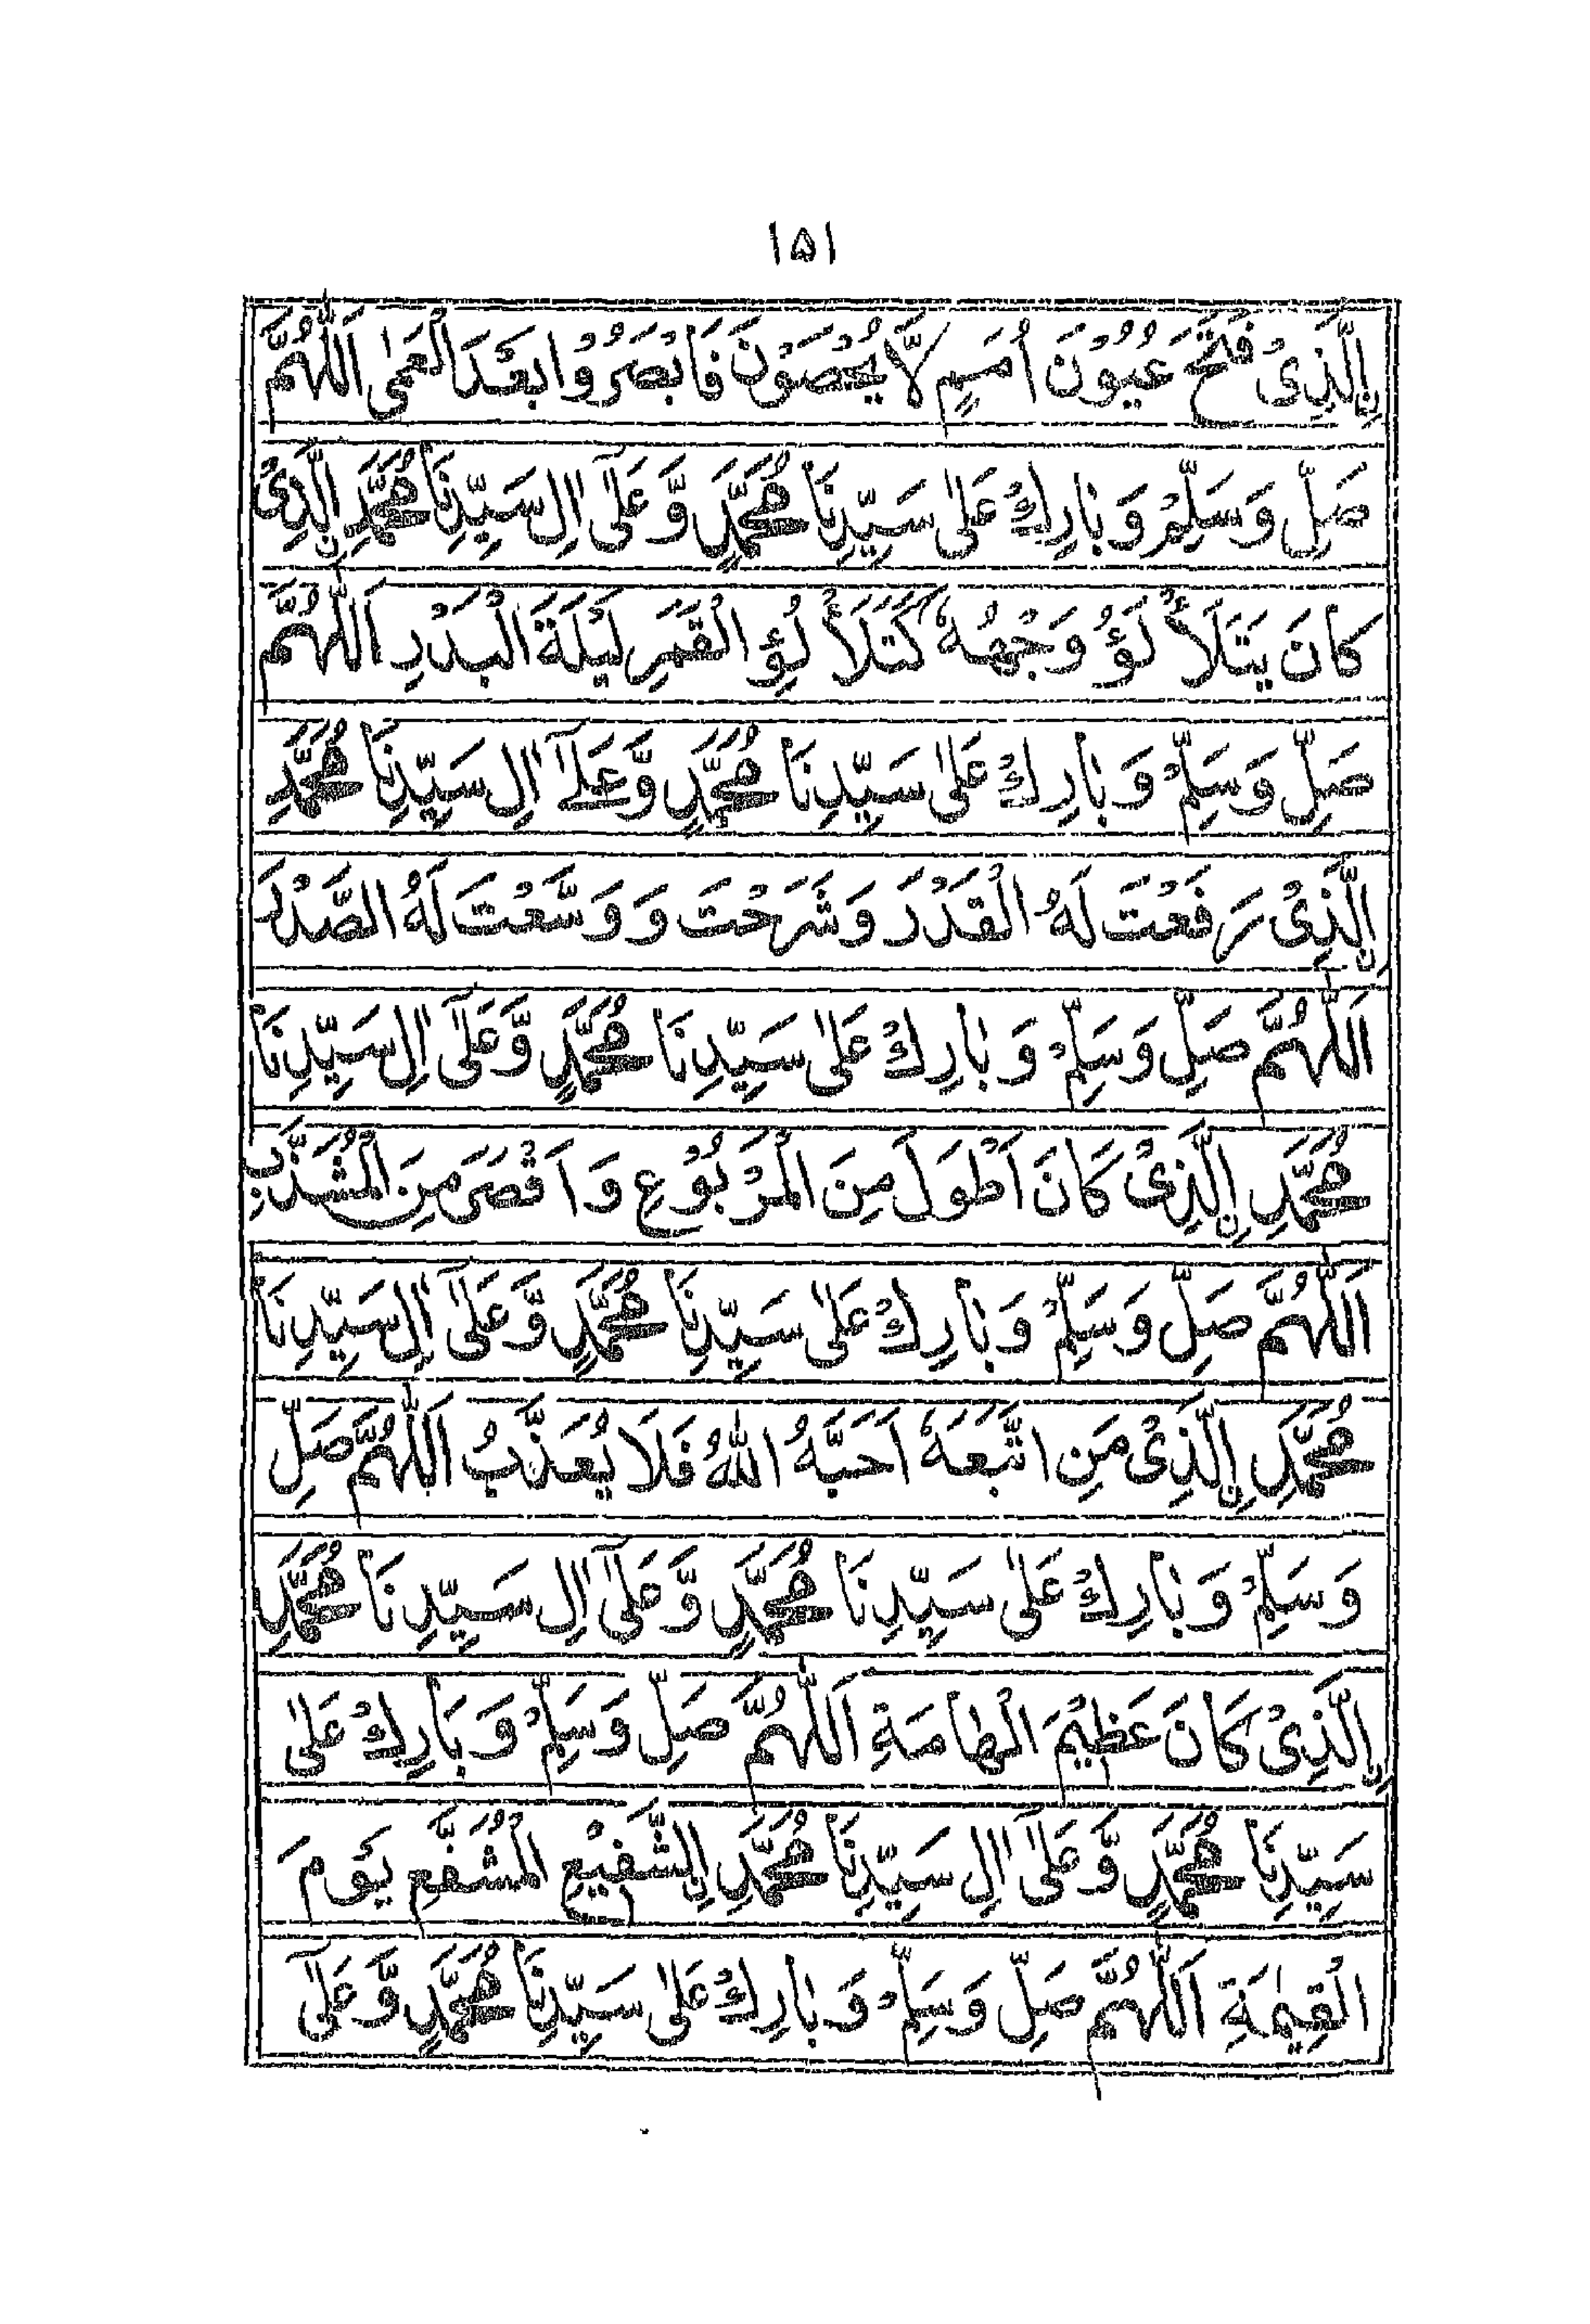 ۱۵۱
نِ الَّذِىْ فَتَحَ عُيُوْنَ اُمَمٍ لَّا يُحْصَوْنَ فَاَبْصَرُوْا بَعْدَ الْعَمٰى اَللّٰهُمَّ
صَلِّ وَسَلِّمْ وَبَارِكْ عَلٰى سَيِّدِنَا مُحَمَّدٍ وَّعَلٰٓى اٰلِ سَيِّدِنَا مُحَمَّدِ نِ الَّذِىْ
كَانَ يَتَلَأْ لَؤُ وَجْهُهٗ كَتَلَأْ لُؤِ الْقَمَرِ لَيْلَةَ الْبَدْرِ اَللّٰهُمَّ
صَلِّ وَسَلِّمْ وَبَارِكْ عَلٰى سَيِّدِنَا مُحَمَّدٍ وَّعَلٰٓى اٰلِ سَيِّدِنَا مُحَمَّدِ
نِ الَّذِىْ رَفَعْتَ لَهُ الْقَدْرَ وَشَرَحْتَ وَ وَسَّعْتَ لَهُ الصَّدْرَ
اَللّٰهُمَّ صَلِّ وَسَلِّمْ وَبَارِكْ عَلٰى سَيِّدِنَا مُحَمَّدٍ وَّعَلٰٓى اٰلِ سَيِّدِنَا
مُحَمَّدِ نِ الَّذِىْ كَانَ اَطْوَلَ مِنَ الْمَرْبُوْعِ وَاَقْصَرَ مِنَ الْمُشَذَّبِ
اَللّٰهُمَّ صَلِّ وَسَلِّمْ وَبَارِكْ عَلٰى سَيِّدِنَا مُحَمَّدٍ وَّعَلٰٓى اٰلِ سَيِّدِنَا
مُحَمَّدِ نِ الَّذِىْ مَنِ اتَّبَعَهٗ اَحَبَّهُ اللّٰهُ فَلَا يُعَذَّبُ اَللّٰهُمَّ صَلِّ
وَسَلِّمْ وَبَارِكْ عَلٰى سَيِّدِنَا مُحَمَّدٍ وَّعَلٰٓى اٰلِ سَيِّدِنَا مُحَمَّدِ
نِ الَّذِىْ كَانَ عَظِيْمَ الْهَامَةِ اَللّٰهُمَّ صَلِّ وَسَلِّمْ وَبَارِكْ عَلٰى
سَيِّدِنَا مُحَمَّدٍ وَّعَلٰٓى اٰلِ سَيِّدِنَا مُحَمَّدِ نِ الشَّفِيْعِ الْمُشَفَّعِ يَوْمَ
الْقِيٰمَةِ اَللّٰهُمَّ صَلِّ وَسَلِّمْ وَبَارِكْ عَلٰى سَيِّدِنَا مُحَمَّدٍ وَّعَلٰٓى